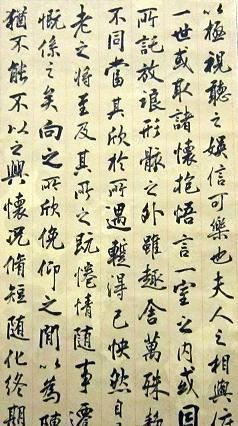 以極視聽之娛信可樂也夫人之相與俯
一世或取諸懷抱悟言一室之內或因
所託放浪形骸之外雖趣舍萬殊靜
不同當其欣於所遇蹔得己怏然自
老之將至及其所之既惓情隨事遷
慨係之矣向之所欣俛仰之間以為陳
猶不能不以之興懷況脩短隨化終期